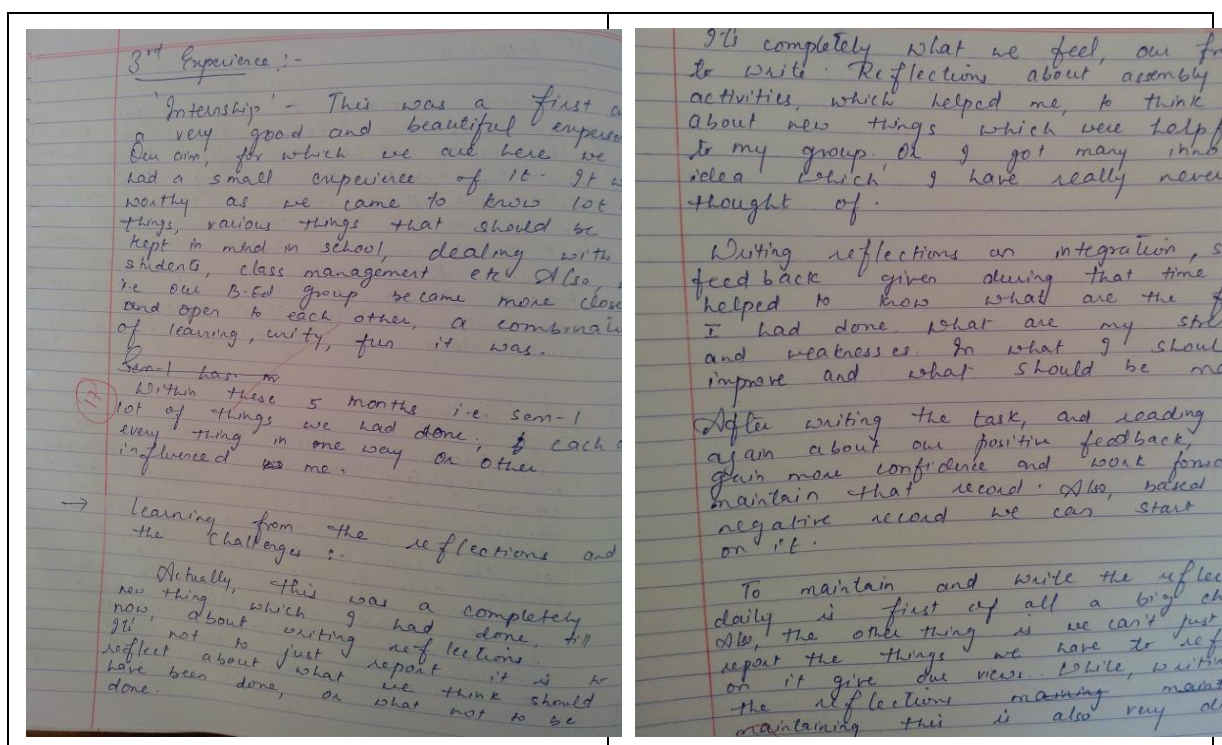 3rd Experience :-
'Internship' - This was a first
a very good and beautiful
Our aim, for which we are here we
had a small experience of it. It
worthy as we came to know lot
things, various things that should be
kept in mind in school, dealing with
students, class management etc Also,
i.e our B.Ed group became more close
and open to each other, a
of learning, unity, fun it was.
Sem-1 has
Within these 5 months i.e sem-1
lot of things we had done, each
every thing in one way or other
influenced me.
→ Learning from the reflections and
the challenges :-
Actually, this was a completely
new thing which I had done, till
now, about writing reflections.
It's not to just report it is to
reflect about what we think should
have been done, or what not to be
done.
It's completely what we feel, our
to write. Reflections about assembly
activities, which helped me, to think
about new things which were
to my group. Or I got many
idea which I have really never
thought of.
Writing reflections on integration,
feedback given during that time
helped to know what are the
I had done what are my
and weaknesses. In what I
improve and what should be
After writing the task, and reading
again about our positive feedback,
gain more confidence and work
maintain that record. Also, based
negative record we can start
on it.
To maintain and write the
daily is first of all a big
Also, the other thing is we can't just
report the things we have to
on it give our views. While,
the reflections
maintaining this is also very